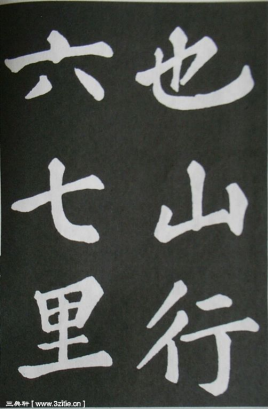 也山行
六七里
三典轩 [ www.3ztie.cn ]